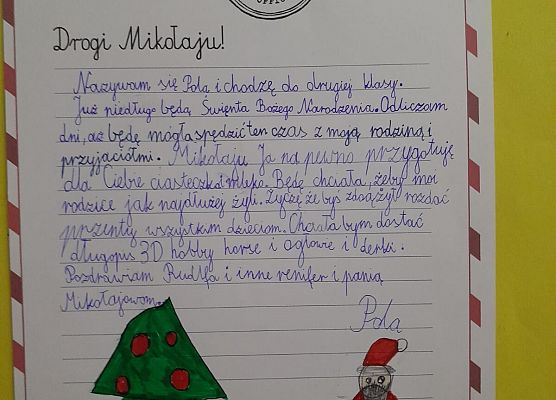 Drogi Mikołaju!
Nazywam się Pola i chodzę do drugiej klasy.
Już niedługo będą Święnta Bożego Narodzenia. Odliczam
dni, aż będę mógła spędzić ten czas z moją rodziną i
przyjaciółmi. Mikołaju Ja na pewno przygotuję
dla Ciebie ciasteczka i mleko. Będę chciała, żeby moi
rodzice jak najdłużej żyli. Życzę że byś zdążył rozdać
prezenty wszystkim dzieciom. Chciała bym dostać
długopis 3D hobby horse i ogłowe i derki.
Pozdrawiam Rudlfa i inne renifer i panią
Mikołajowom.
Pola